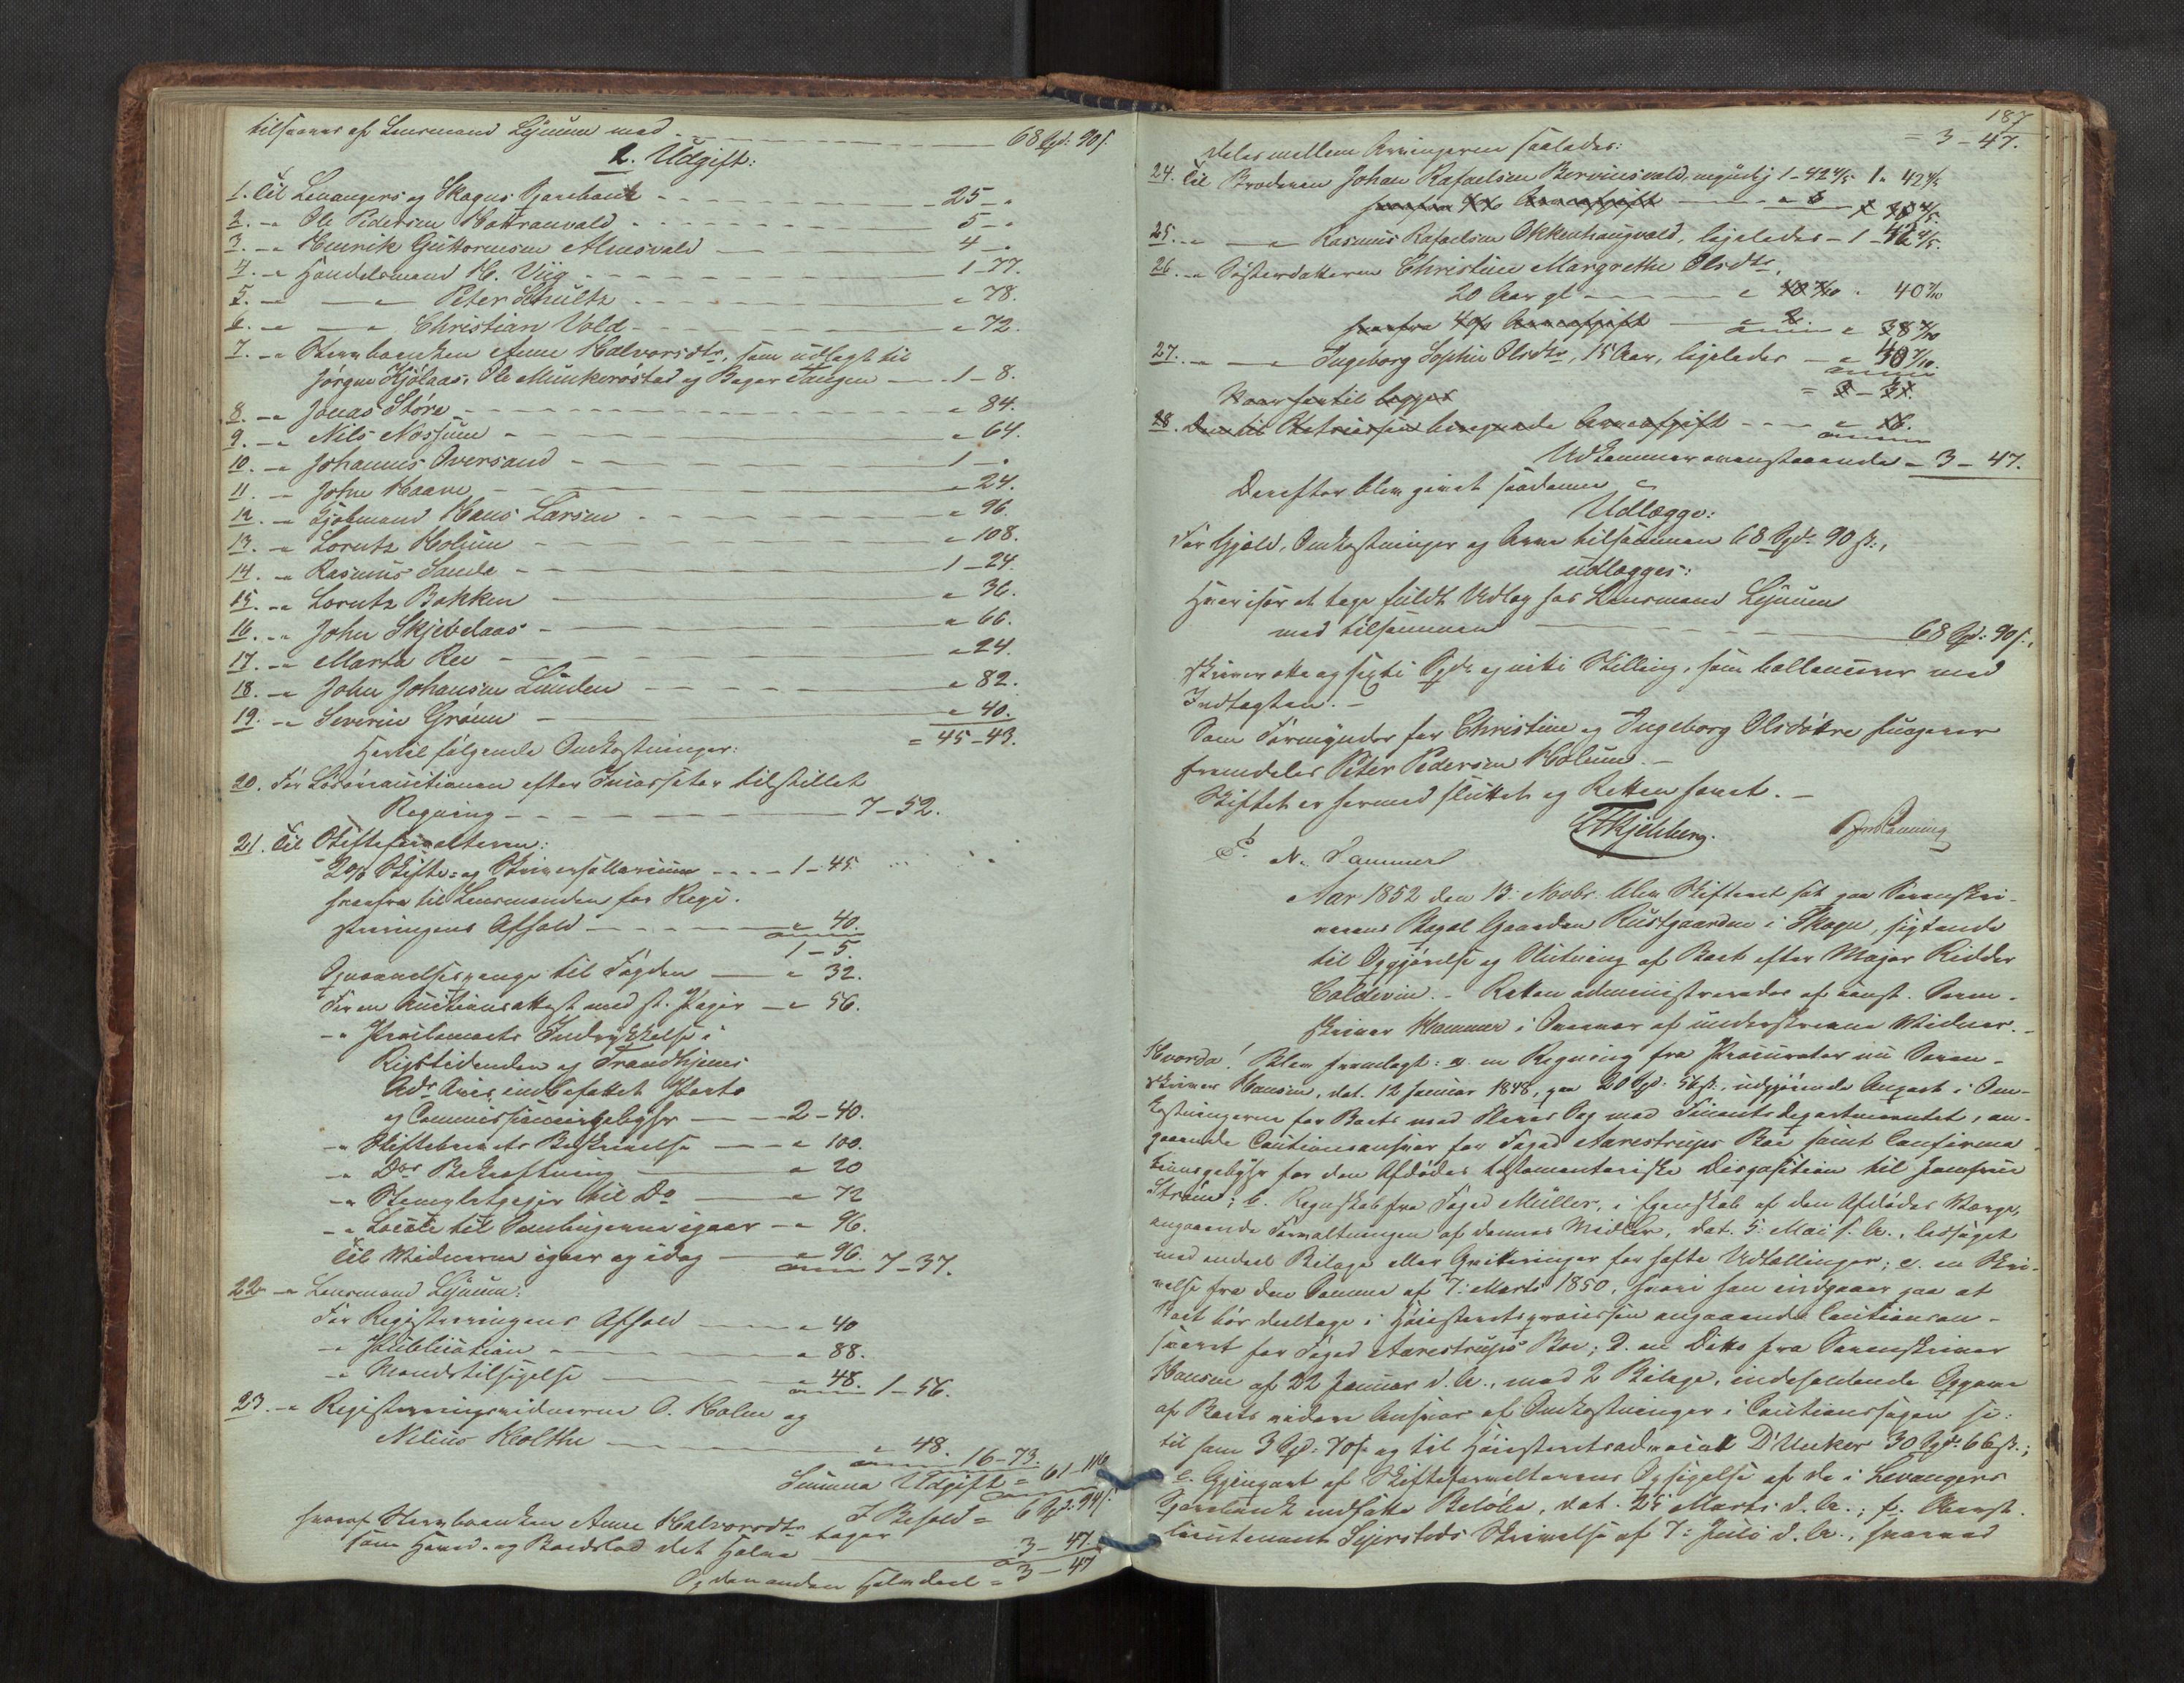 tilsvares af Lensmand Ljuum med - - - 68 Spd: 90 s.
2. Udgift:
1. Til Levangers og Skogns Sparebank - - - 25 - "
2. - " Ole Pedersen Hottranvald - - - 5 - "
3. - " Henrik Guttormsen Almsvald - 4 - "
4. - " Handelsmand H. Viig - - - 1 - 77.
5. - " — " Peter Schultz - - - " 78.
6. - " — " Christian Vold - - - " 72.
7. - " Stervboenken Anne Halvorsdtr, som udlagt til
Jörgen Kjölaas, Ole Munkeröstad og Bager Tangen - 1 - 8.
8. - " Jonas Störe - - - " 84.
9. - " Nils Nossum - - - " 64.
10. - " Johannes Oversand - - - 1 - "
11. - " John Haave - - - " 24.
12. - " Kjöbmand Hans Larsen - - - " 96.
13. - " Lorntz Holum - - - " 108.
14. - " Rasmus Sande - - - 1 - 24.
15. - " Lorntz Bakken - - - " 36.
16. - " John Skjevelaas - - - " 66.
17. - " Marta Ree - - - " 24.
18. - " John Johansen Lunden - - - " 82.
19. - " Severin Grönn - - - " 40.
Hertil følgende Omkostninger: = 45 - 43.
20. For Løsøreauctionen efter Incassator tilstillet
Regning - - - 7 - 52.
21. Til Skifteforvalteren:
2 % Skifte- og Skriversallarium - - - 1 - 45.
herfra til Lensmanden for Regi-
streringens Afhold - - - " 40.
1 - 5.
Opnævnelsespenge til Fogden — " 32.
For en Auctionsattest med st. Papir — " 56.
- " Proclamaets Indrykkelse i
Rigstidenden og Trondhjems
Adr. Avis, indbefattet Porto
og Commissionairgebyhr — 2 - 40.
- " Skiftebrevets Beskrivelse — " 100.
- " Dos Bekræftning — " 20
- " Stempletpapir til Do — " 72
- " Locale til Samlingerne igaar — " 96.
Til Vidnerne igaar og idag — " 96. 7 - 37.
22 - " Lensmand Ljuum:
For Registreringens Afhold — " 40
- " Publication — " 88.
- " Mandstilsigelse — " 48. 1 - 56.
23. - " Registreringsvidnerne O. Holm og
Nelius Holthe — " 48. 16 - 73.
Summa Udgift = 61 - 116
I Behold = 6 Spd: 94 s.
hvoraf Stervboenken Anne Halvorsdtr tager
som Hoved- og Boeslod det Halve — 3 - 47.
Og den anden Halvdeel = 3 - 47
187
= 3 - 47.
deles mellem Arvingerne saaledes:
24. Til Broderen Johan Rafaelsen Bervinsvald, myndig 1 - 42 4/5 1 " 42 4/5
herfra 4 % Arveafgift - - - " 6
25. - " — " Rasmus Rafaelsen Okkenhaugvald, ligeledes - 1 - 42 4/5.
26. - " Søsterdatteren Christine Margrethe Olsdtr,
20 Aar gl — " 40 7/10 " 40 7/10
herfra 4 % Arveafgift — " 2. " 38 7/10
27. - " — " Ingeborg Sophie Olsdtr, 15 Aar, ligeledes — " 40 7/10.
hvorhentil lægges = 3 - 31.
28. Den til Statscassen beregnede Arveafgift - - - " 16.
Udkommer ovenstaaende = 3 - 47.
Derefter blev gjort saadanne
Udlægge:
For Gjæld, Omkostninger og Arve tilsammen 68 Spd. 90 sk.,
udlægges:
Hver især at tage fuldt Udlæg hos Lensmand Ljuum
med tilsammen - - - 68 Spd: 90 s.,
skriver otte og sexti Spd. og niti Skilling, som ballancerer med
Indtægten. -
Som Formynder for Christine og Ingeborg Olsdötre fungerer
fremdeles Peter Pedersen Holum. -
Skiftet er hermed sluttet og Retten hævet. -
N. Hammer
Aar 1852 den 13. Novbr. blev Skifteret sat paa Sorenskri-
verens Bopæl Gaarden Rustgaarden i Skogn, sigtende
til Opgjørelse og Slutning af Boet efter Major Ridder
Coldevin. - Retten administreredes af const. Soren-
skriver Hammer i Overvær af underskrevne Vidner. -
Hvorda! Blev fremlagt: a. en Regning fra Procurator nu Soren-
skriver Hansen, dat. 12 Januar 1848, paa 20 Spd: 56 sk., udgjørende Anpart i Om-
kostningerne for Boets med Fleres Sag mod Finantsdepartementet, an-
gaaende Cautionsansvar for Foged Aarestrups Boe samt Confirma-
tionsgebyhr for den Afdødes testamentariske Disposition til Jomfrue
Ström; b. Regnskab fra Foged Müller, i Egenskab af den Afdødes Værge,
angaaende Forvaltningen af dennes Midler, dat. 5. Mai f. A., ledsaget
med endeel Bilage eller Qvitteringer for hafte Udtællinger; c. en Skri-
velse fra den Samme af 7. Marts 1850, hvori han indgaaer paa at
Boet bör deeltage i Høiesteretsprocessen angaaende Cautionsan-
svaret for Foged Aarestrups Boe; D. en Ditto fra Sorenskriver
Hansen af 22 Januar d. A., med 2 Bilage, indeholdende Opgave
af Boets videre Ansvar af Omkostninger i Cautionssagen so:
til ham 3 Spd: 70 s. og til Høiesteretsadvocat D'Unker 30 Spd. 66 sk.;
e. Gjenpart af Skifteforvalterens Opsigelse af de i Levangers
Sparebank indsatte Beløbe, dat. 25 Marts d. A.; f. Const.
Lieutenant Sejersteds Skrivelse af 7. Juli d. A., hvorved